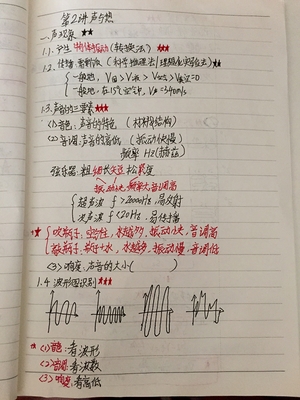 第2讲 声与热 ★★
一.声现象 ★★
1.1. 产生 物体振动 (转换法) ★★★
1.2. 传播 需介质 (科学推理法/理想化实验法) ★★
一般地, V固>V液>V气>V真空=0
一般地, 在15℃空气中, V声=340m/s
1.3. 声音的三要素 ★★★
<1>音色: 声音的特色 (材料结构)
<2>音调: 声音的高低 (振动快慢)
频率 Hz(赫兹)
弦乐器: 粗细长短松紧
振动快, 频率大音调高
超声波 f>20000Hz,
次声波 f<20Hz,
★ 吹瓶子, 空气柱, 水越多, 振动快, 音调高
敲瓶子, 瓶+水, 水越多, 振动慢, 音调低
<3>响度: 声音的大小( )
1.4 波形图识别 ★★★
★ <1>音色: 看波形
<2>音调: 看波数
<3>响度: 看高低